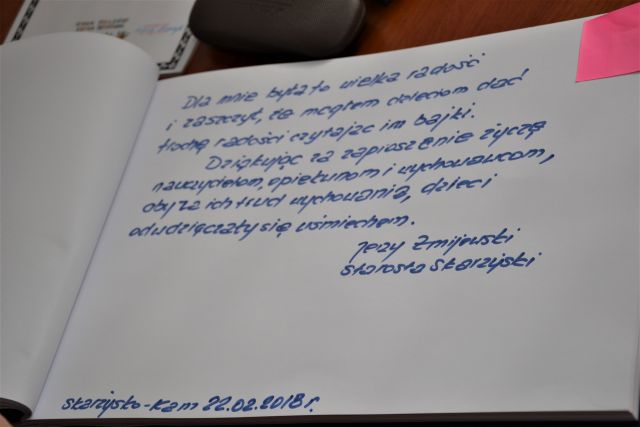 Dla mnie była to wielka radość
i zaszczyt, że mogłem dzieciom dać
trochę radości czytając im bajki.
Dziękując za zaproszenie życzę
nauczycielom, opiekunom i wychowawcom,
aby za ich trud wychowania, dzieci
odwdzięczały się uśmiechem.
Jerzy Żmijewski
starosta skarżyski
skarżysko-Kam 22.02.2018 r.